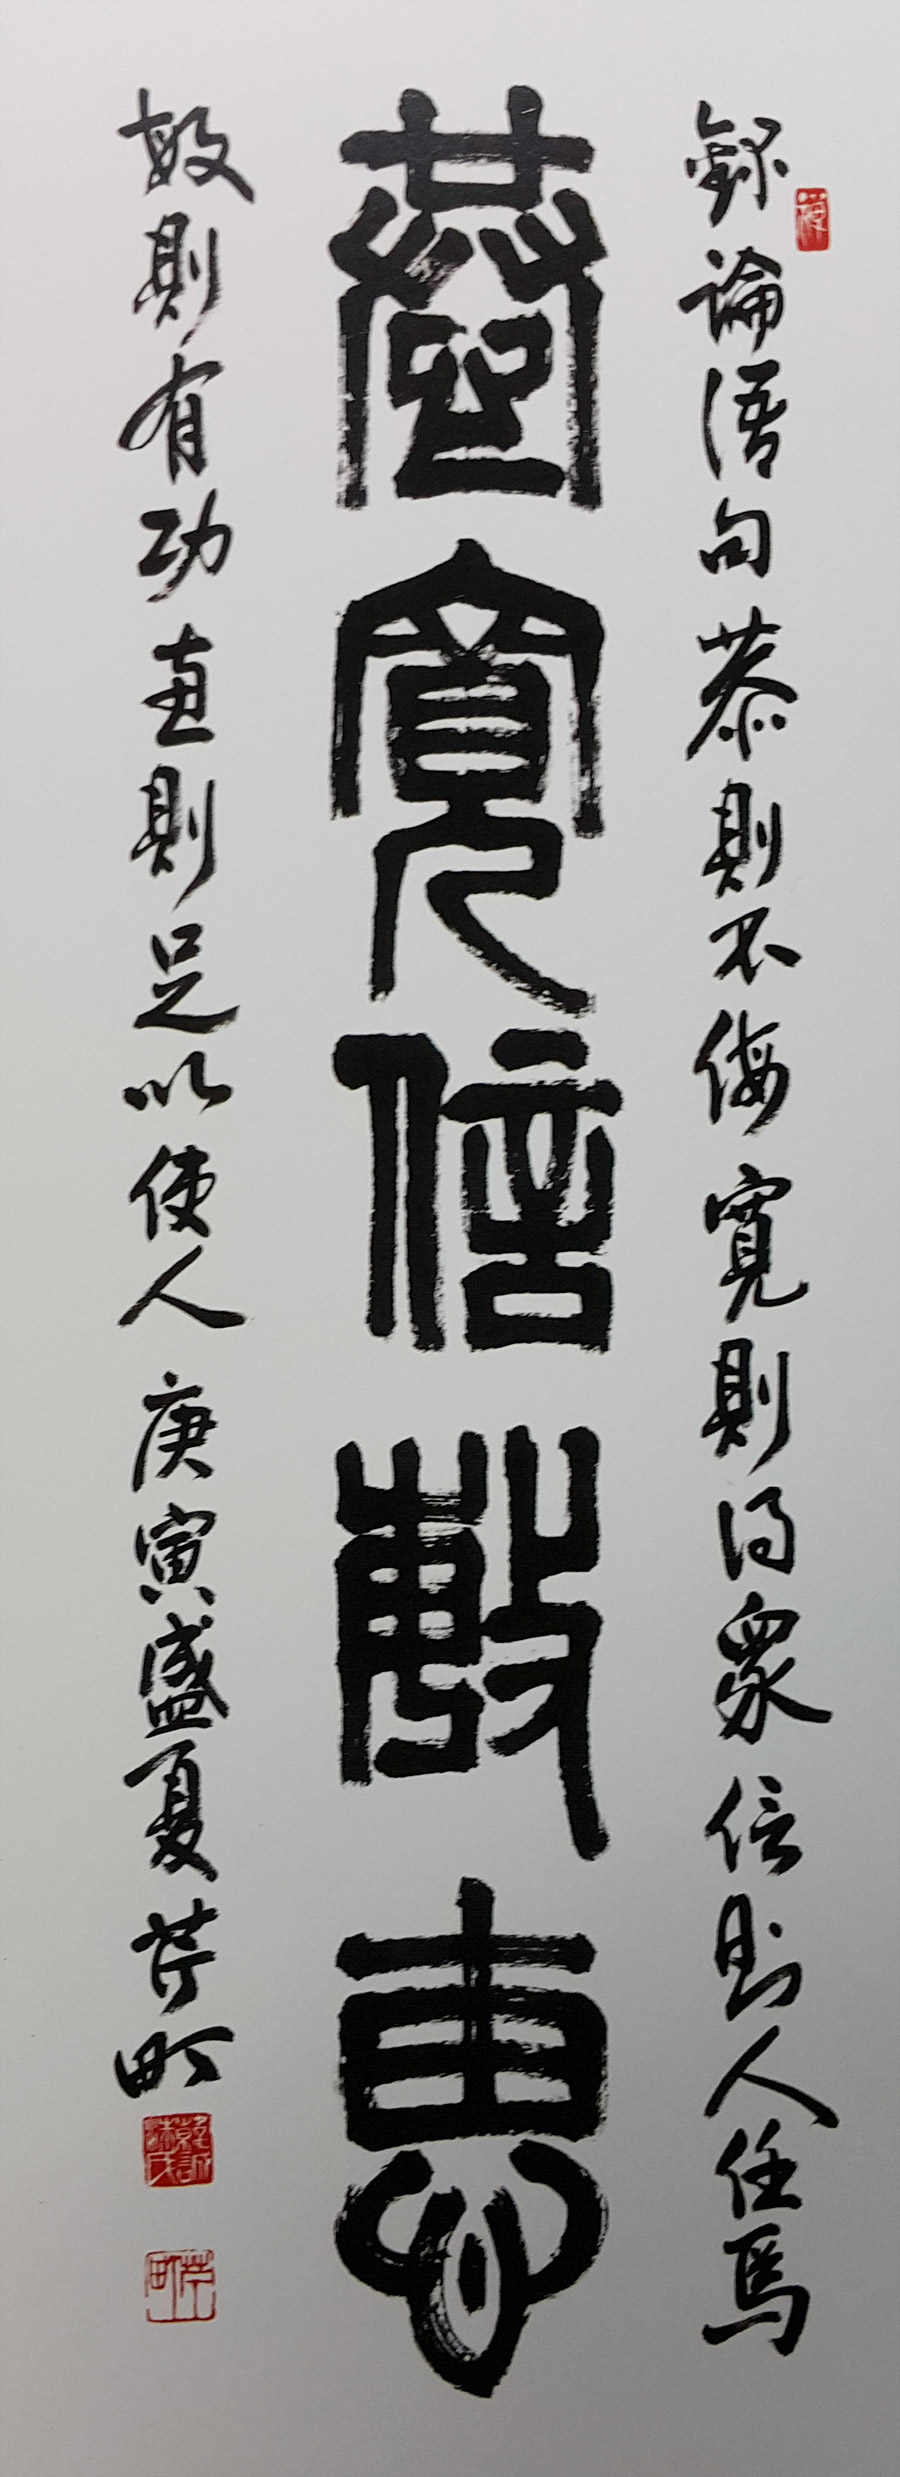 錄論語句恭則不侮寬則得衆信則人任焉
恭寬信敏惠
敏則有功惠則足以使人庚寅盛夏芹町
芹町